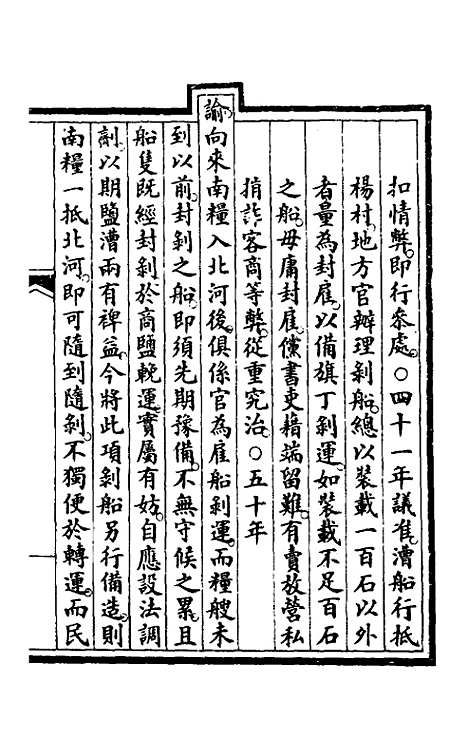 扣情弊。即行叅處。○四十一年議准。漕船行抵
楊村。地方官辦理剝船。總以裝載一百石以外
者量為封雇。以備旗丁剝運。如裝載不足百石
之船。毋庸封雇。儻書吏藉端留難。有賣放營私
揹詐客商等弊。從重究治。○五十年
諭向來南糧入北河後。俱係官為雇船剝運。而糧艘未
到以前。封剝之船。即須先期豫備。不無守候之累。且
船隻既經封剝。於商鹽輓運。實屬有妨。自應設法調
劑。以期鹽漕兩有裨益。今將此項剝船另行備造。則
南糧一抵北河。即可隨到隨剝。不獨便於轉運。而民